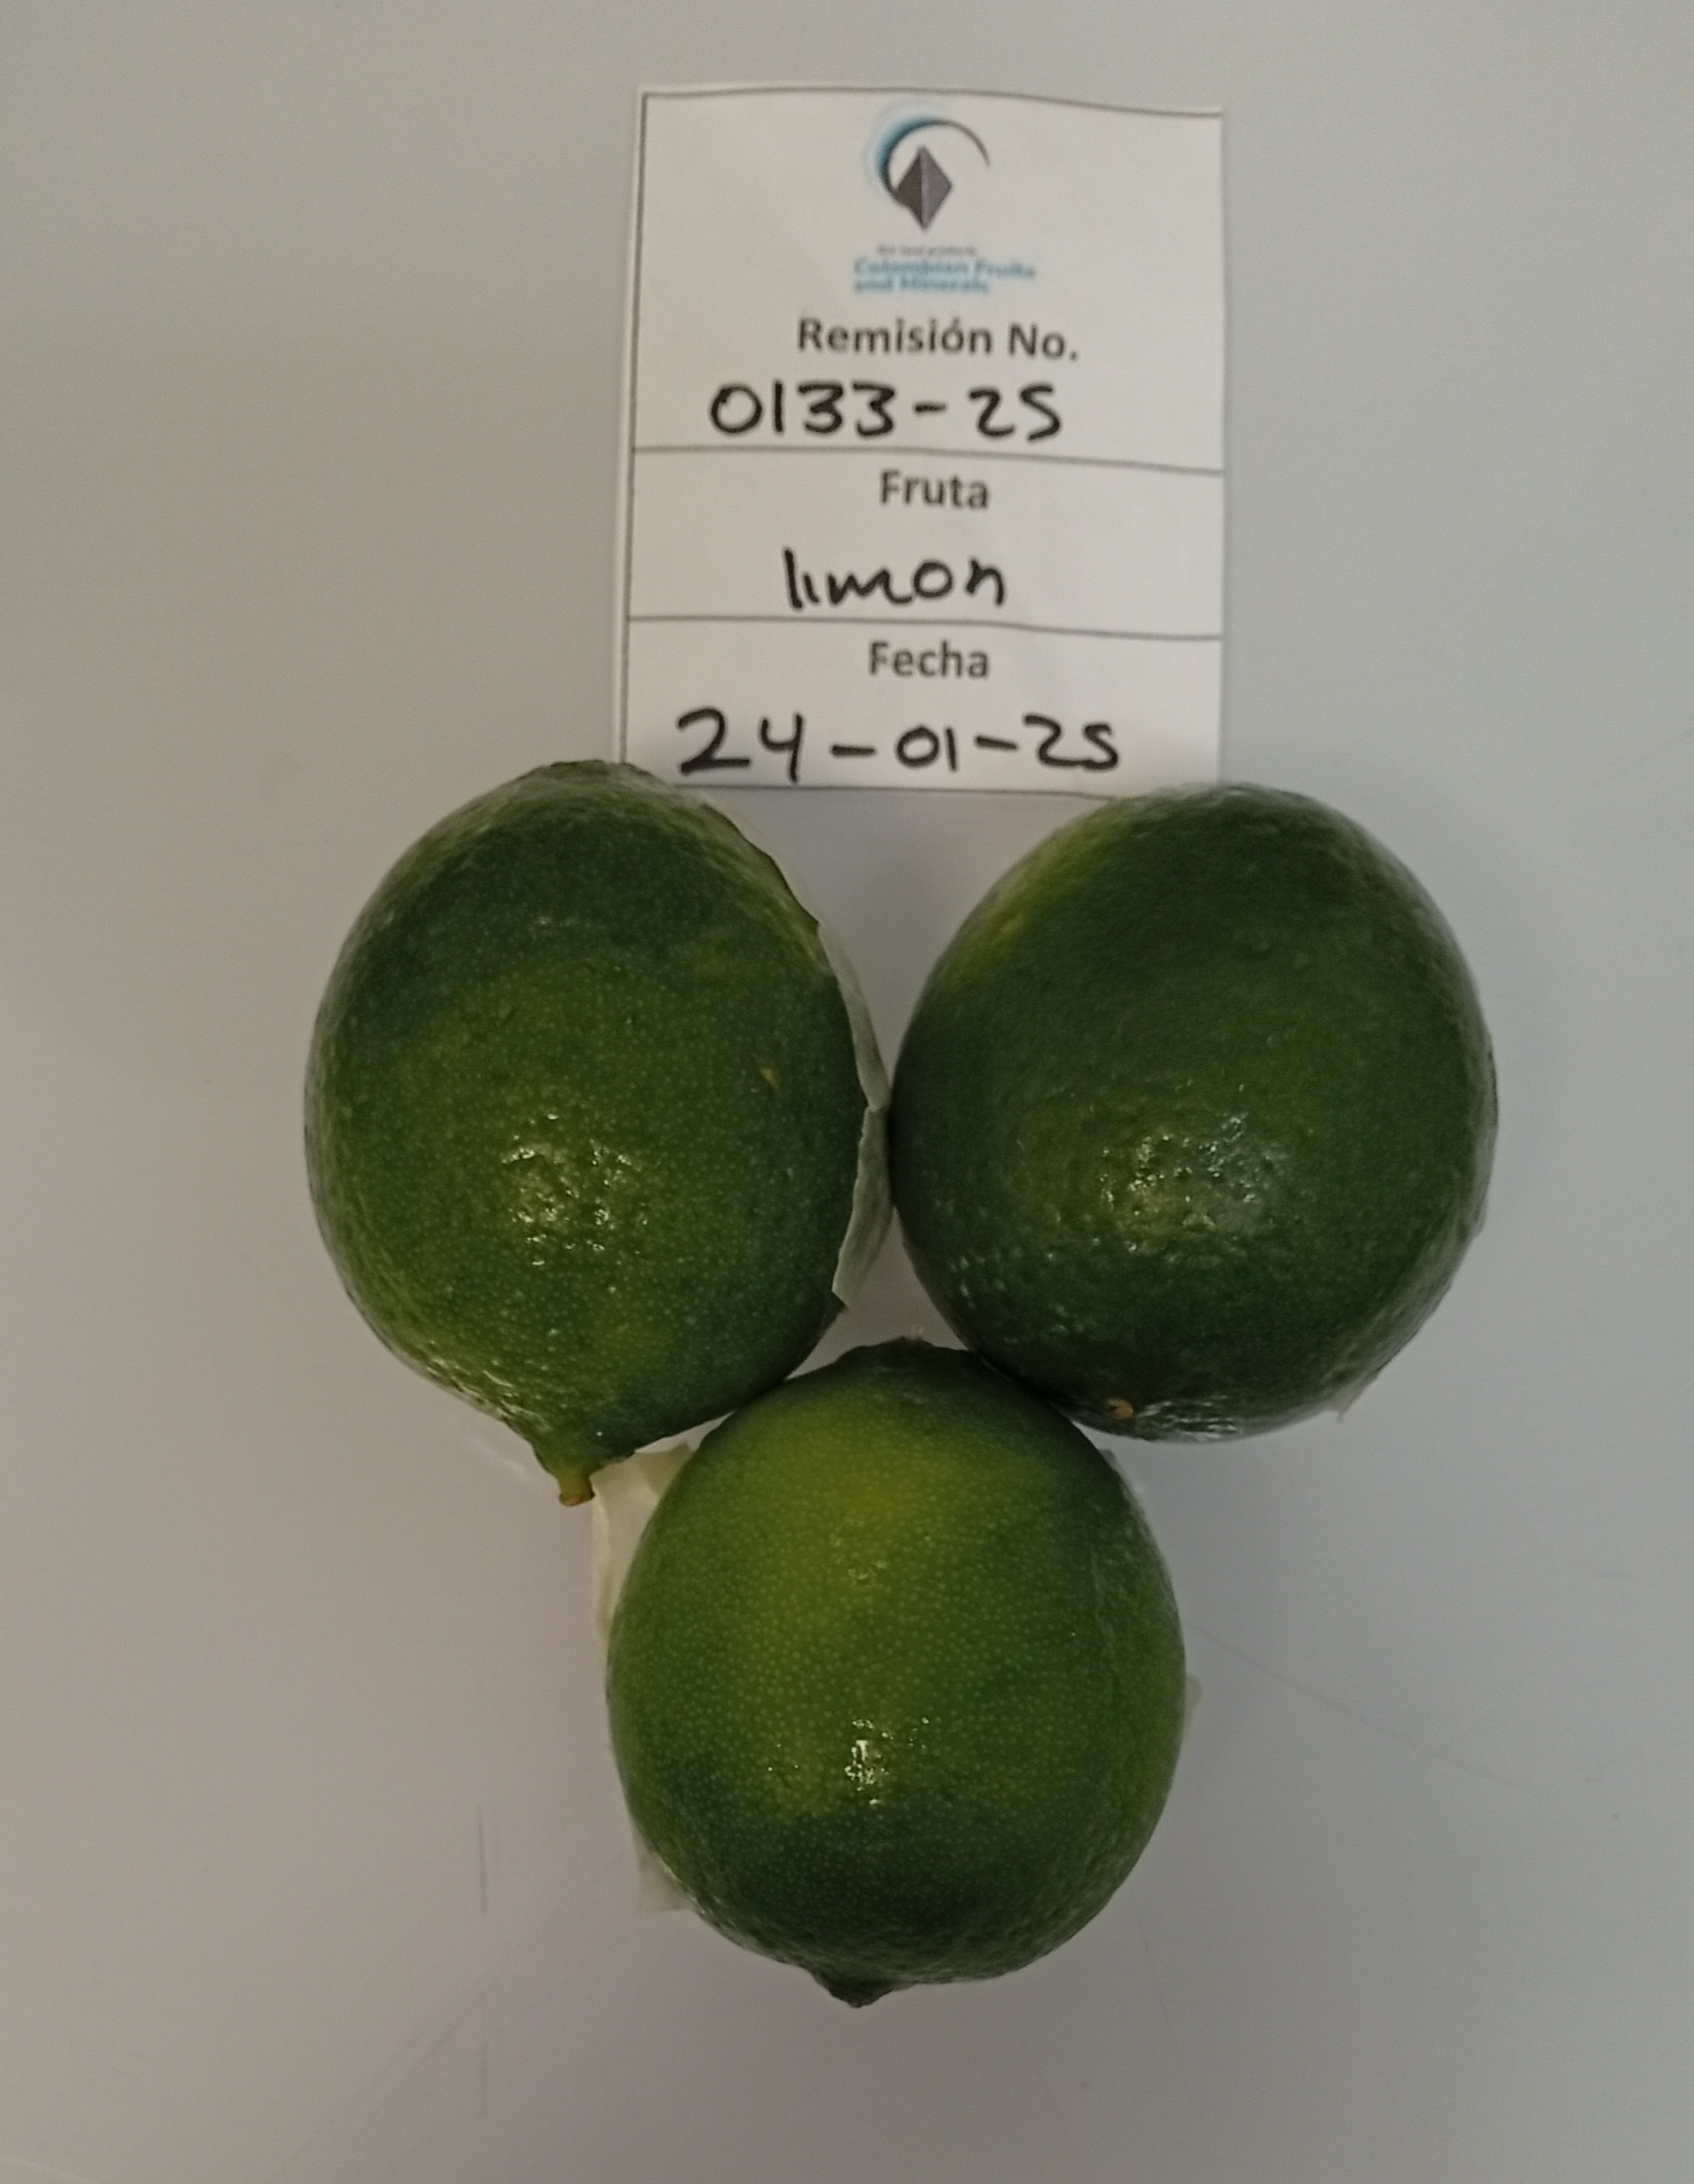 Colombian Fruits
and Minerals
Remisión No.
0133-25
Fruta
limon
Fecha
24-01-25